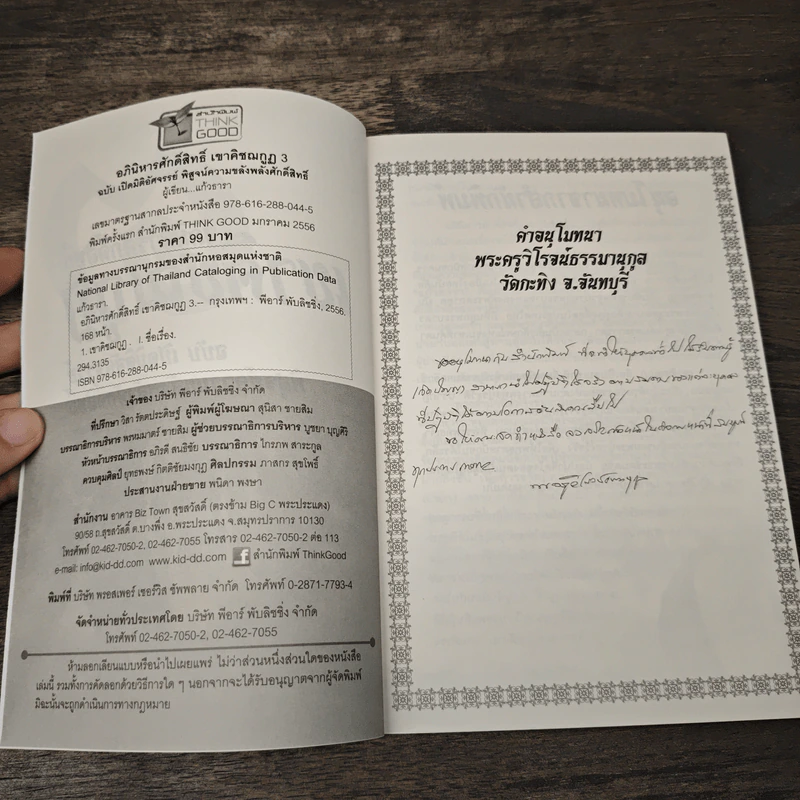 สำนักพิมพ์
THINK
GOOD
อภินิหารศักดิ์สิทธิ์ เขาคิชฌกูฏ 3
ฉบับ เปิดมิติอัศจรรย์ พิสูจน์ความขลังพลังศักดิ์สิทธิ์
ผู้เขียน...แก้วธารา
เลขมาตรฐานสากลประจำหนังสือ 978-616-288-044-5
พิมพ์ครั้งแรก สำนักพิมพ์ THINK GOOD มกราคม 2556
ราคา 99 บาท
ข้อมูลทางบรรณานุกรมของสำนักหอสมุดแห่งชาติ
National Library of Thailand Cataloging in Publication Data
แก้วธารา.
อภินิหารศักดิ์สิทธิ์ เขาคิชฌกูฏ 3.-- กรุงเทพฯ : พีอาร์ พับลิชชิ่ง, 2556.
168 หน้า.
1. เขาคิชฌกูฏ. I. ชื่อเรื่อง.
294.3135
ISBN 978-616-288-044-5
เจ้าของ บริษัท พีอาร์ พับลิชชิ่ง จำกัด
ที่ปรึกษา วิสา รัตตประดิษฐ์ ผู้พิมพ์ผู้โฆษณา สุนิสา ชายสิม
บรรณาธิการบริหาร พรหมมาตร์ ชายสิม ผู้ช่วยบรรณาธิการบริหาร บุชยา บุญศิริ
หัวหน้าบรรณาธิการ อภิรดี สนธิชัย บรรณาธิการ ไกรภพ สาระกูล
ควบคุมศิลป์ ยุทธพงษ์ กิตติชัยมงกุฎ ศิลปกรรม ภาสกร สุขโพธิ์
ประสานงานฝ่ายขาย พนิดา พงษา
สำนักงาน อาคาร Biz Town สุขสวัสดิ์ (ตรงข้าม Big C พระประแดง)
90/58 ถ.สุขสวัสดิ์ ต.บางพึ่ง อ.พระประแดง จ.สมุทรปราการ 10130
โทรศัพท์ 02-462-7050-2, 02-462-7055 โทรสาร 02-462-7050-2 ต่อ 113
e-mail: info@kid-dd.com www.kid-dd.com f สำนักพิมพ์ ThinkGood
พิมพ์ที่ บริษัท พรอสเพอร์ เซอร์วิส ซัพพลาย จำกัด โทรศัพท์ 0-2871-7793-4
จัดจำหน่ายทั่วประเทศโดย บริษัท พีอาร์ พับลิชชิ่ง จำกัด
โทรศัพท์ 02-462-7050-2, 02-462-7055
ห้ามลอกเลียนแบบหรือนำไปเผยแพร่ ไม่ว่าส่วนหนึ่งส่วนใดของหนังสือ
เล่มนี้ รวมทั้งการคัดลอกด้วยวิธีการใด ๆ นอกจากจะได้รับอนุญาตจากผู้จัดพิมพ์
มิฉะนั้นจะถูกดำเนินการทางกฎหมาย
คำอนุโมทนา
พระครูวิโรจน์ธรรมานุกูล
วัดกะทิง จ.จันทบุรี
ขออนุโมทนากับ สำนักพิมพ์